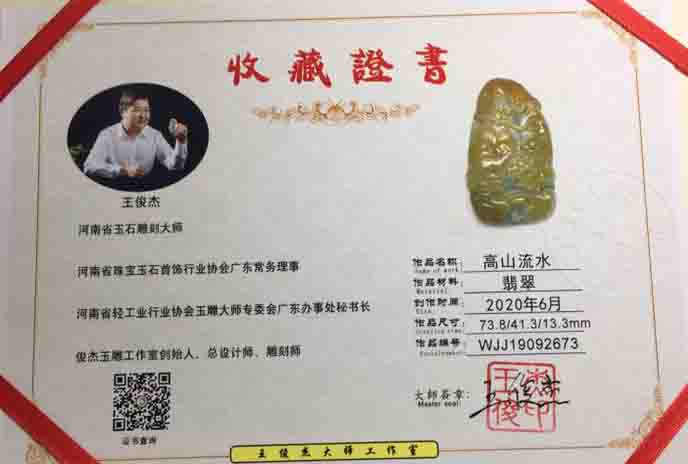 收藏證書
王俊杰
河南省玉石雕刻大师
河南省珠宝玉石首饰行业协会广东常务理事
河南省轻工业行业协会玉雕大师专委会广东办事处秘书长
俊杰玉雕工作室创始人、总设计师、雕刻师
证书查询
作品名称: 高山流水
Name of work:
作品材料: 翡翠
Material:
创作时间: 2020年6月
作品尺寸: 73.8/41.3/13.3mm
作品编号: WJJ19092673
大師簽章:
Master seal:
王俊杰
王俊杰印
王俊杰大师工作室